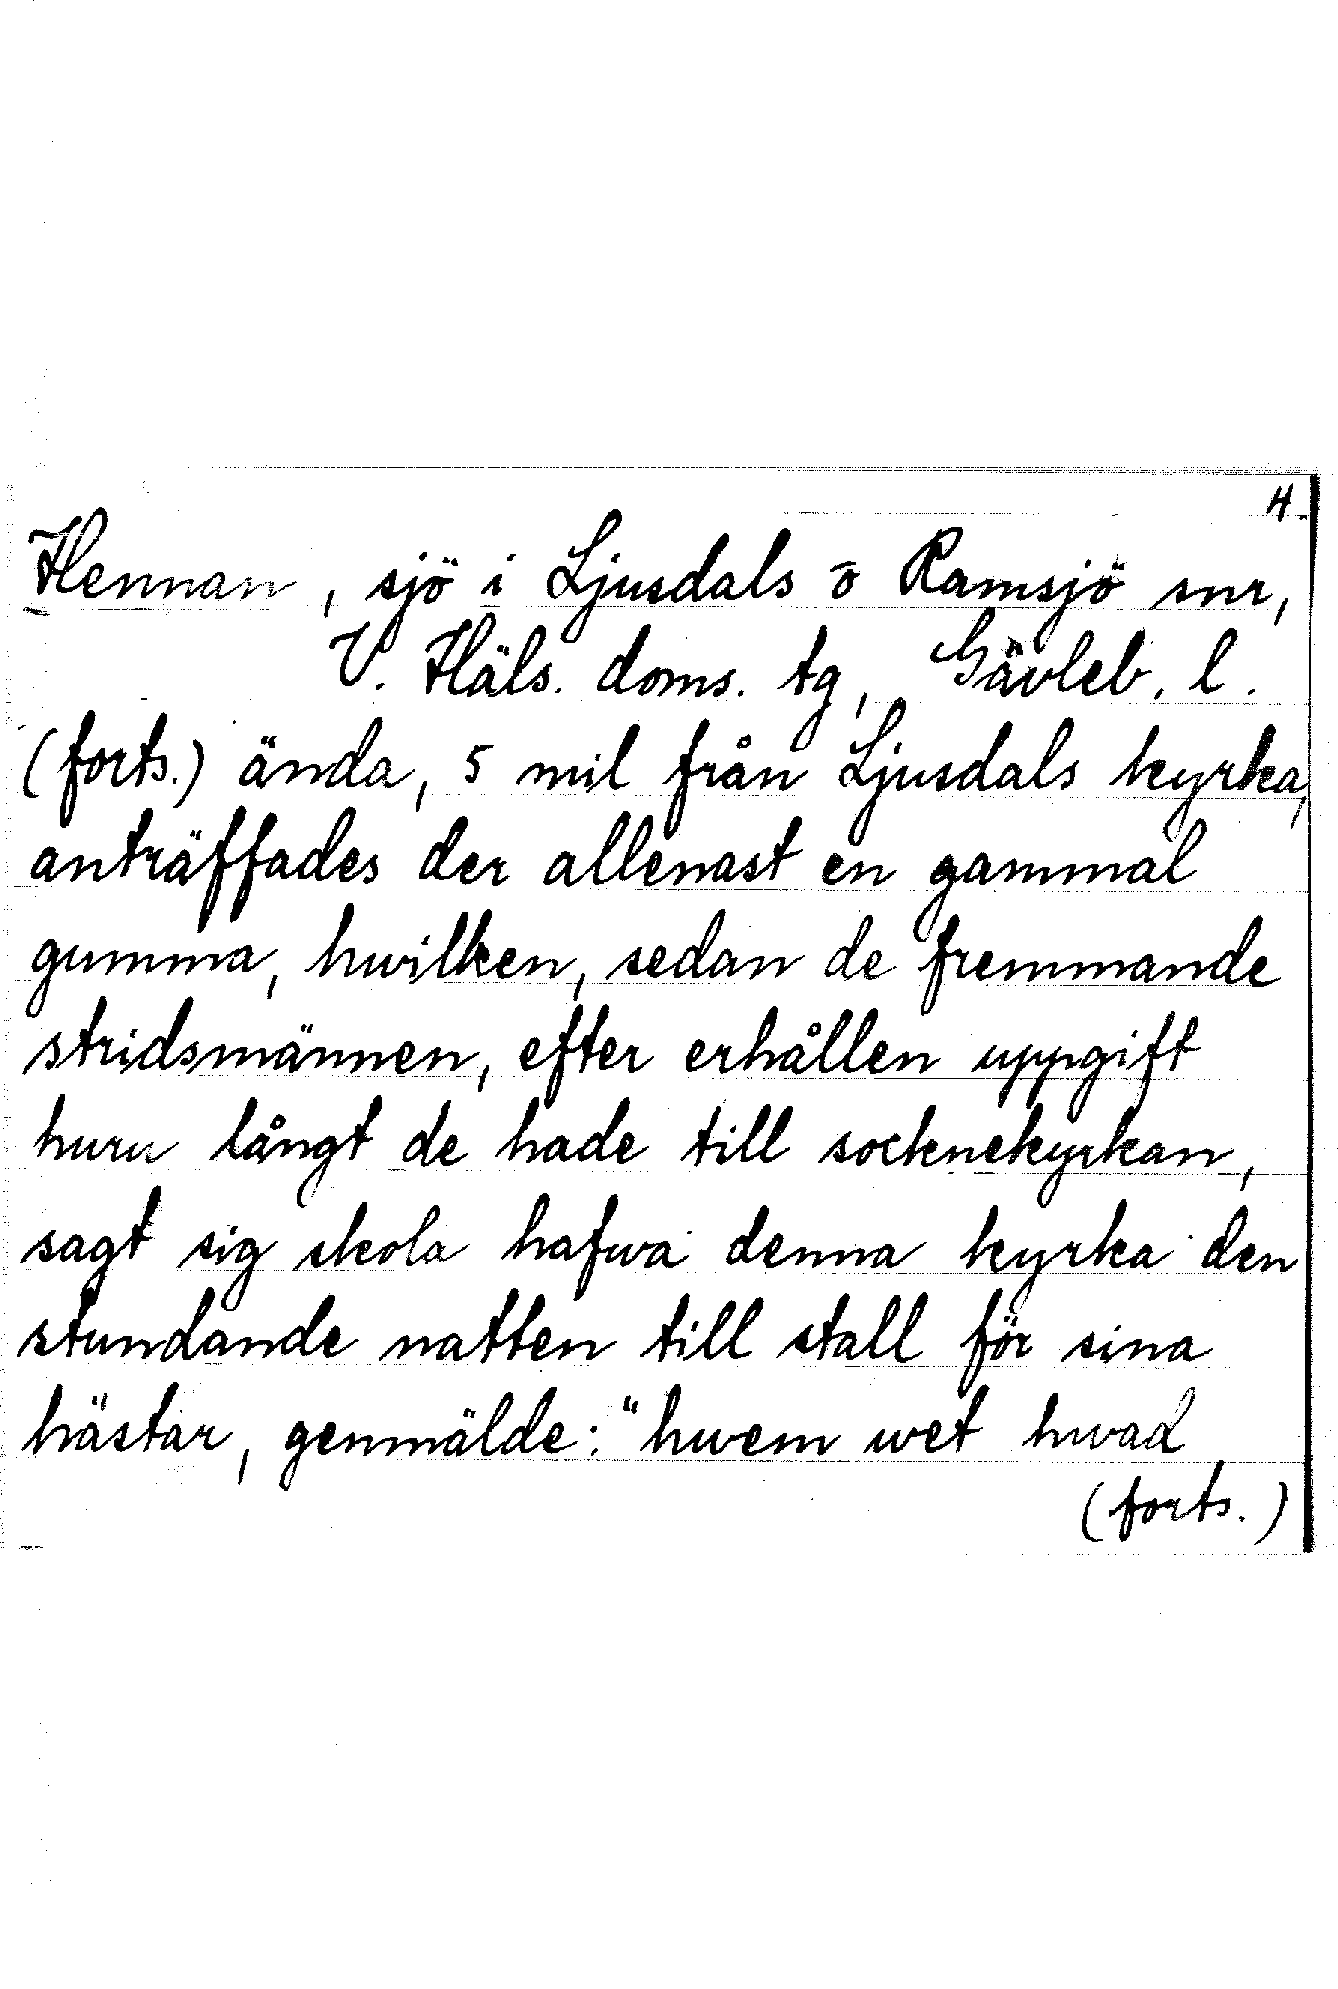 4.
Hennan, sjö i Ljusdals o Ramsjö snr,
V. Häls. doms. tg, Gävleb. l.
(forts.) ända, 5 mil från Ljusdals kyrka,
anträffades der allenast en gammal
gumma, hwilken, sedan de fremmande
stridsmännen, efter erhållen uppgift
huru långt de hade till socknekyrkan,
sagt sig skola hafwa denna kyrka den
stundande natten till stall för sina
hästar, genmälde: "hwem wet hwad
(forts.)